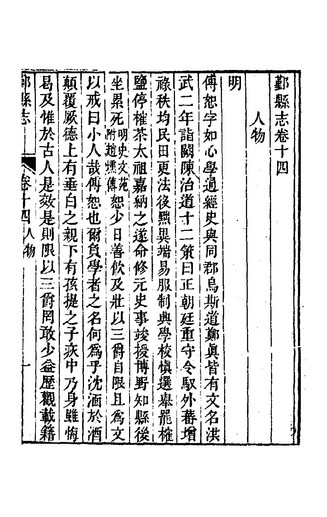 鄞縣志卷十四
人物
明
傅恕字如心學通經史與同郡烏斯道鄭眞皆有文名洪
武二年詣闕陳治道十二策曰正朝廷重守令馭外蕃增
祿秩均民田更法役黜異端易服制興學校愼選舉罷榷
鹽停榷茶太祖嘉納之遂命修元史事竣授博野知縣後
坐累死明史文苑附趙壎傳恕少日善飮及壯以三爵自限且爲文
以戒曰小人哉傅恕也爾負學者之名何爲乎沈湎於酒
顚覆厥德上有垂白之親下有孩提之子疢中乃身雖悔
曷及惟於古人是效是則限以三爵罔敢少益歷觀載籍
鄞縣志
卷十四 人物
一